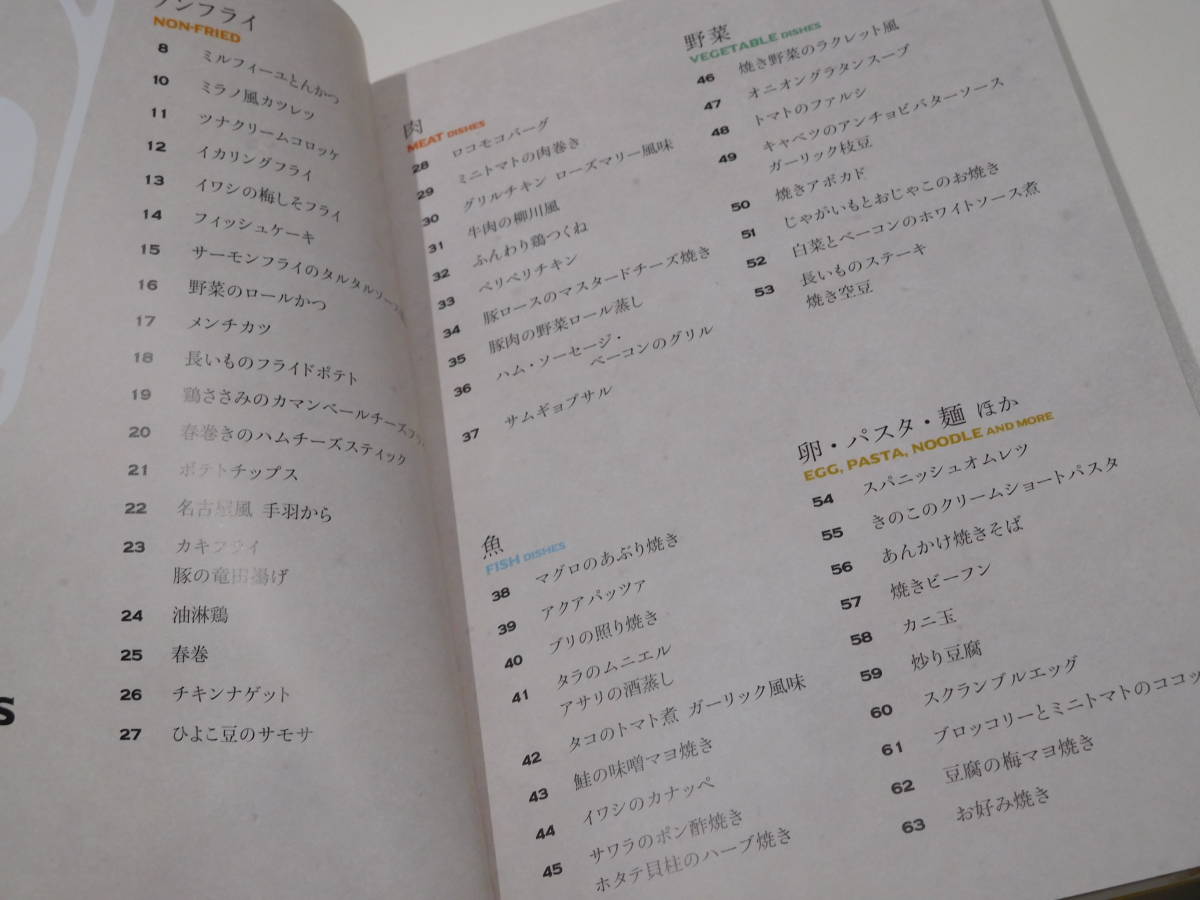 ノンフライ
NON-FRIED
8 ミルフィーユとんかつ
10 ミラノ風カツレツ
11 ツナクリームコロッケ
12 イカリングフライ
13 イワシの梅しそフライ
14 フィッシュケーキ
15 サーモンフライのタルタルソース
16 野菜のロールかつ
17 メンチカツ
18 長いものフライドポテト
19 鶏ささみのカマンベールチーズフライ
20 春巻きのハムチーズスティック
21 ポテトチップス
22 名古屋風 手羽から
23 カキフライ
豚の竜田揚げ
24 油淋鶏
25 春巻
26 チキンナゲット
27 ひよこ豆のサモサ
S
肉
MEAT DISHES
28 ロコモコバーグ
29 ミニトマトの肉巻き
30 グリルチキン ローズマリー風味
31 牛肉の柳川風
32 ふんわり鶏つくね
33 ペリペリチキン
34 豚ロースのマスタードチーズ焼き
35 豚肉の野菜ロール蒸し
36 ハム・ソーセージ・
ベーコンのグリル
37 サムギョプサル
魚
FISH DISHES
38 マグロのあぶり焼き
39 アクアパッツァ
40 ブリの照り焼き
41 タラのムニエル
アサリの酒蒸し
42 タコのトマト煮 ガーリック風味
43 鮭の味噌マヨ焼き
44 イワシのカナッペ
45 サワラのポン酢焼き
ホタテ貝柱のハーブ焼き
野菜
VEGETABLE DISHES
46 焼き野菜のラクレット風
47 オニオングラタンスープ
48 トマトのファルシ
49 キャベツのアンチョビバターソース
ガーリック枝豆
50 焼きアボカド
51 じゃがいもとおじゃこのお焼き
52 白菜とベーコンのホワイトソース煮
53 長いものステーキ
焼き空豆
卵・パスタ・麺 ほか
EGG, PASTA, NOODLE AND MORE
54 スパニッシュオムレツ
55 きのこのクリームショートパスタ
56 あんかけ焼きそば
57 焼きビーフン
58 カニ玉
59 炒り豆腐
60 スクランブルエッグ
61 ブロッコリーとミニトマトのココッ
62 豆腐の梅マヨ焼き
63 お好み焼き